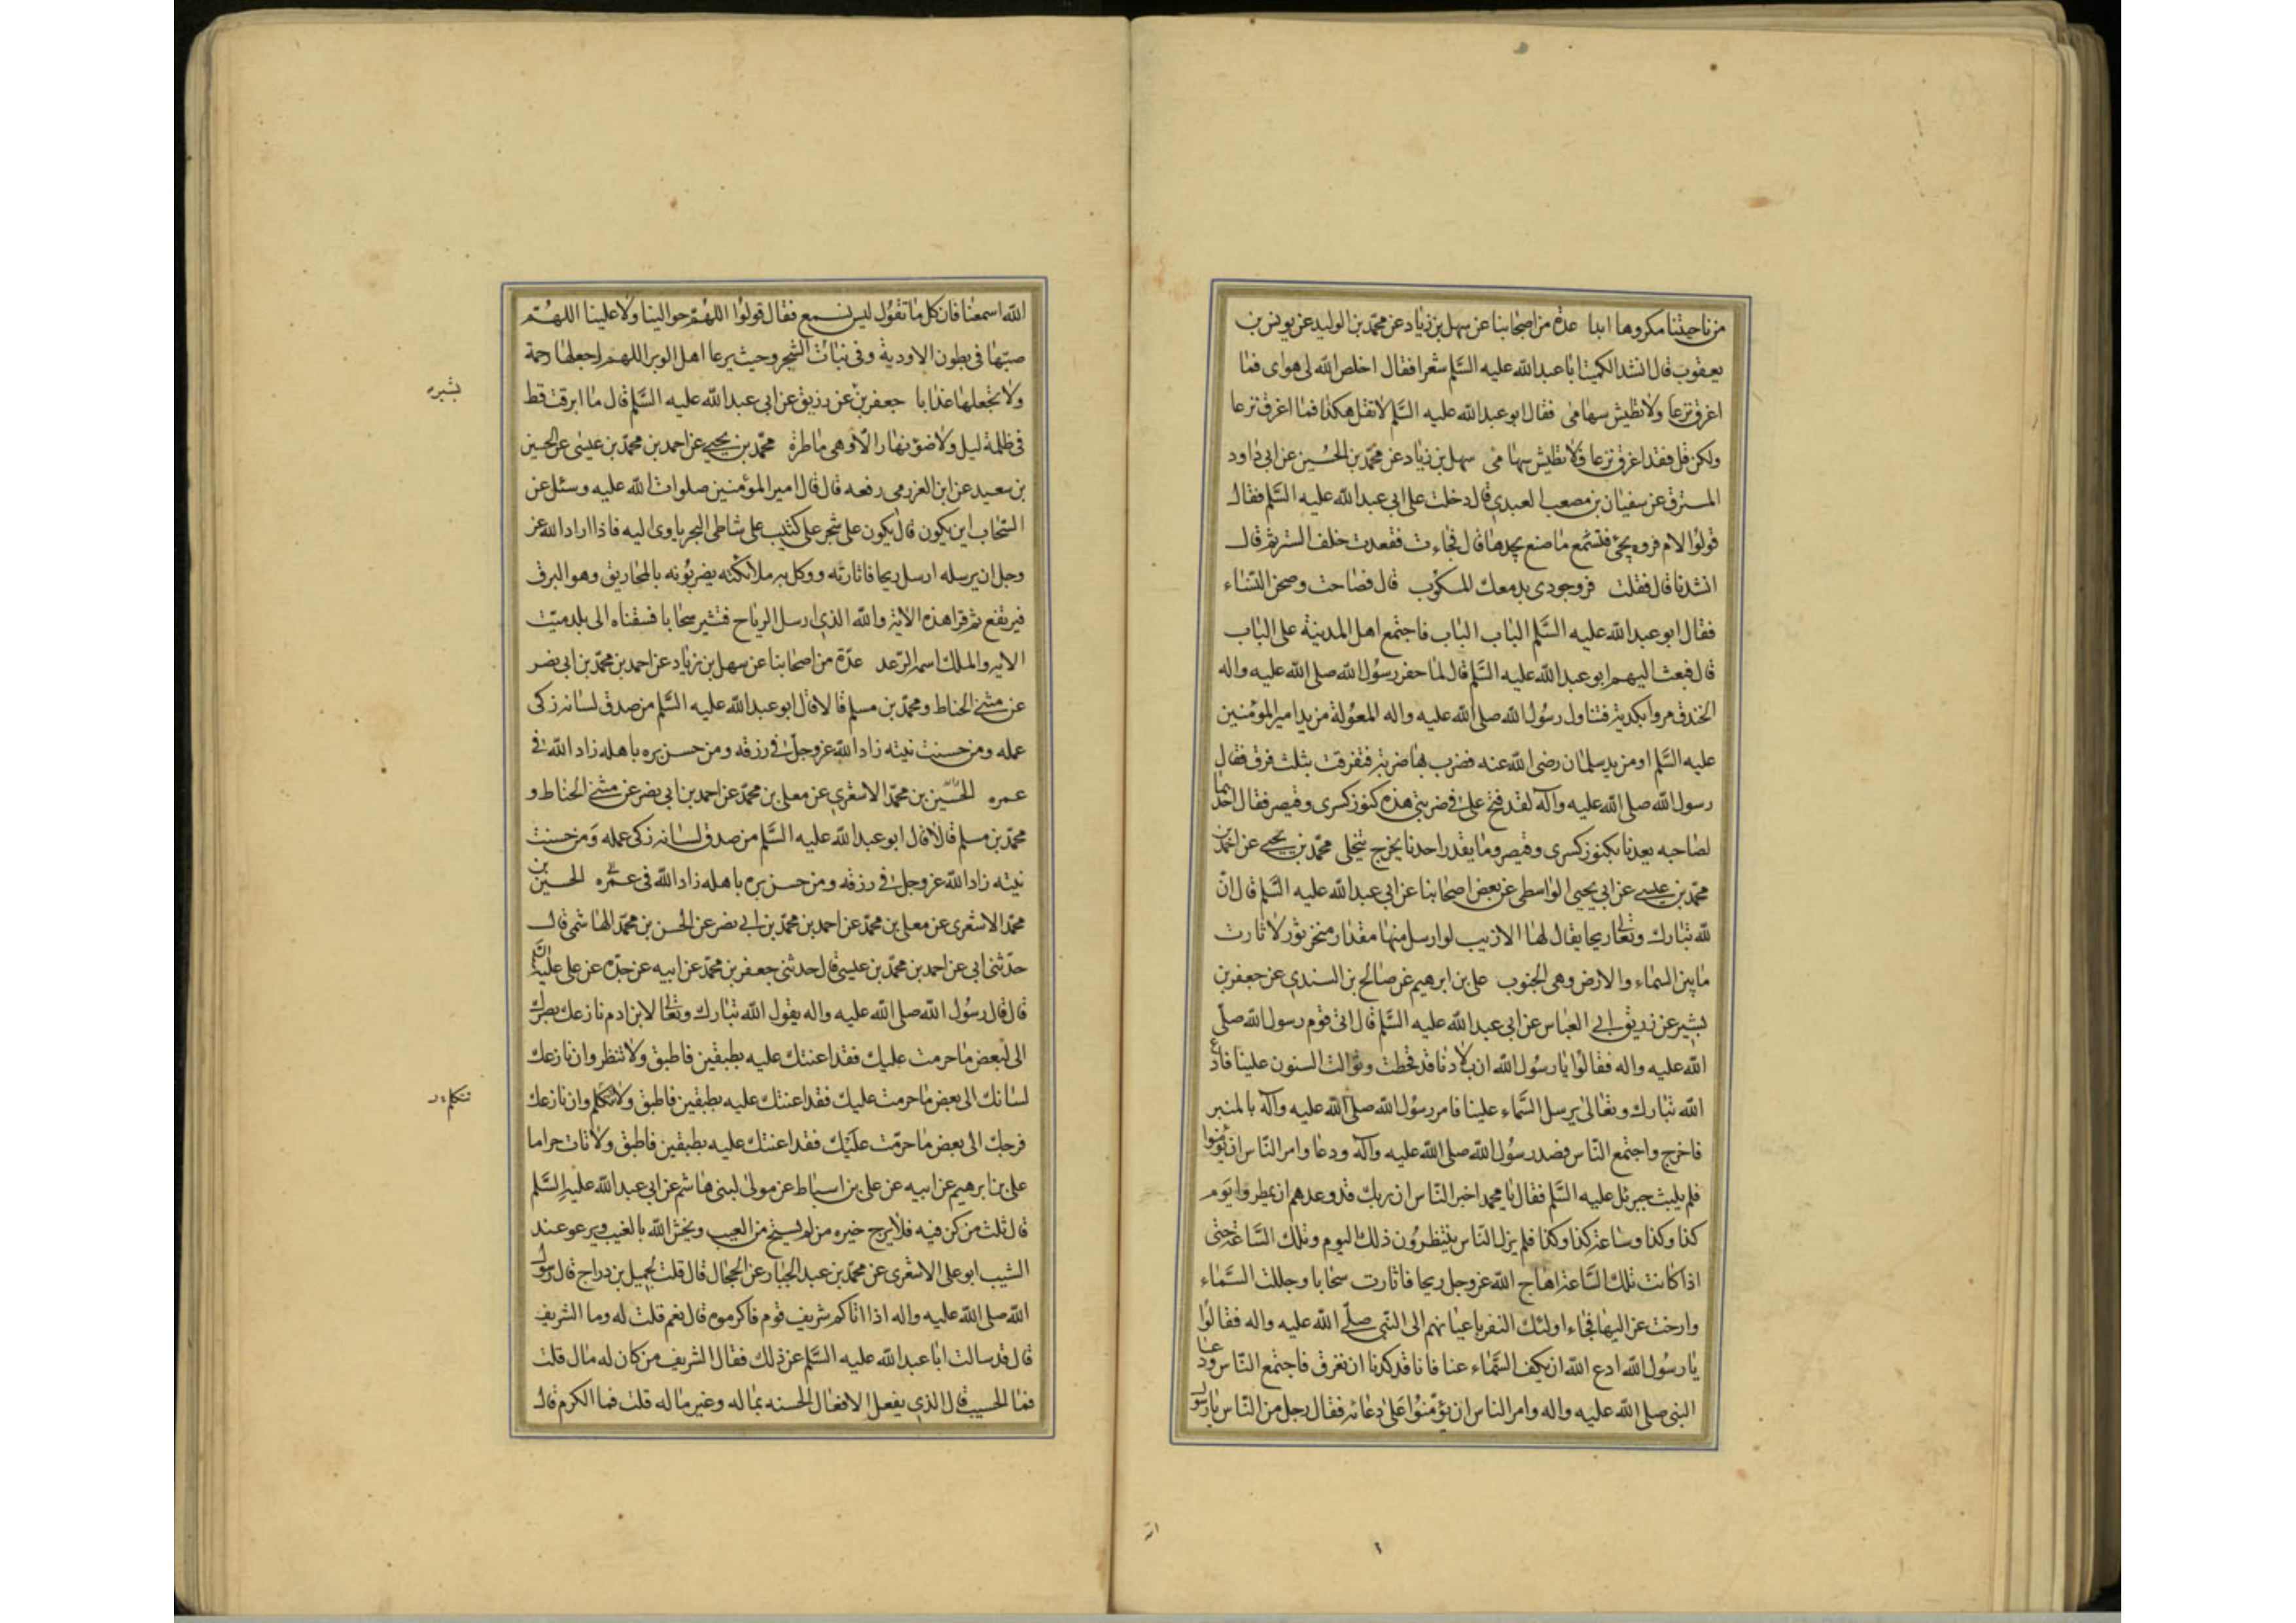 من ناحيتنا مكروها ابدا عدة من اصحابنا عن سهل بن زياد عن محمد بن الوليد عن يونس بن
يعقوب قال انشد الكميت ابا عبد الله عليه السلم شعرا فقال اخلص الله لى هواى فما
اغرق نزعا ولا تطيش سهامى فقال ابو عبد الله عليه السلم لا تقل هكذا فما اغرق نزعا
ولكن قل فقد اغرق نزعا فلا تطيش سهامى سهل بن زياد عن محمد بن الحسين عن ابى داود
المسترق عن سفيان بن مصعب العبدى قال دخلت على ابى عبد الله عليه السلم فقال
قولوا لام فروه تجئ فتسمع ما صنع بجدها قال فجاءت فقعدت خلف الستر ثم قال
انشدنا قال فقلت فرو جودى بدمعك المسكوب قال فصاحت وصحن النساء
فقال ابو عبد الله عليه السلم الباب الباب فاجتمع اهل المدينة على الباب
قال فبعث اليهم ابو عبد الله عليه السلم قال لما حفر رسول الله صلى الله عليه واله
الخندق مروا بكدية فتناول رسول الله صلى الله عليه واله المعولة من يد امير المؤمنين
عليه السلم او من يد سلمان رضى الله عنه فضرب بها ضربة فتفرقت بثلث فرق فقال
رسول الله صلى الله عليه وآله لقد فتح على فى ضربتى هذه كنوز كسرى وقيصر فقال احدهما
لصاحبه يعدنا بكنوز كسرى وقيصر وما يقدر احدنا يخرج يتخلى محمد بن يحيى عن احمد بن
محمد بن عيسى عن ابى يحيى الواسطى عن بعض اصحابنا عن ابى عبد الله عليه السلم قال ان
لله تبارك وتعالى ريحا يقال لها الازيب لو ارسل منها مقدار منخر ثور لاثارت
ما بين السماء والارض وهى الجنوب على بن ابرهيم عن صالح بن السندى عن جعفر بن
بشير عن زريق ابى العباس عن ابى عبد الله عليه السلم قال اتى قوم رسول الله صلى
الله عليه واله فقالوا يا رسول الله ان بلادنا قد قحطت وتوالت السنون علينا فادع
الله تبارك وتعالى يرسل السماء علينا فامر رسول الله صلى الله عليه وآله بالمنبر
فاخرج واجتمع الناس فصعد رسول الله صلى الله عليه وآله ودعا وامر الناس ان يؤمنوا
فلم يلبث جبرئل عليه السلم فقال يا محمد اخبر الناس ان ربك قد وعدهم ان يمطروا يوم
كذا وكذا وساعة كذا وكذا فلم يزل الناس ينتظرون ذلك اليوم وتلك الساعة حتى
اذا كانت تلك الساعة اهاج الله عز وجل ريحا فاثارت سحابا وجللت السماء
وارخت عزاليها فجاء اولئك النفر باعيانهم الى النبى صلى الله عليه واله فقالوا
يا رسول الله ادع الله ان يكف السماء عنا فانا قد كدنا ان نغرق فاجتمع الناس ودعا
النبى صلى الله عليه واله وامر الناس ان يؤمنوا على دعائه فقال رجل من الناس يا رسول
الله اسمعنا فان كل ما تقول ليس نسمع فقال قولوا اللهم حوالينا ولا علينا اللهم
صبها فى بطون الاودية وفى نبات الشجر وحيث يرعا اهل الوبر اللهم اجعلها رحمة
ولا تجعلها عذابا جعفر بن عن رزيق عن ابى عبد الله عليه السلم قال ما ابرقت قط
بشير
فى ظلمة ليل ولا ضوء نهار الا وهى ماطرة محمد بن يحيى عن احمد بن محمد بن عيسى عن الحسين
بن سعيد عن ابن العزرمى رفعه قال قال امير المؤمنين صلوات الله عليه وسئل عن
السحاب اين يكون قال يكون على شجر على كثيب على شاطى البحر ياوى اليه فاذا اراد الله عز
وجل ان يرسله ارسل ريحا فاثارته ووكل به ملائكته يضربونه بالمخاريق وهو البرق
فيرتفع ثم قرا هذه الاية والله الذى ارسل الرياح فتثير سحابا فسقناه الى بلد ميت
الاية والملك اسمه الرعد عدة من اصحابنا عن سهل بن زياد عن احمد بن محمد بن ابى نصر
عن مثنى الحناط ومحمد بن مسلم قالا قال ابو عبد الله عليه السلم من صدق لسانه زكى
عمله ومن حسنت نيته زاد الله عز وجل فى رزقه ومن حسن بره باهله زاد الله فى
عمره الحسين بن محمد الاشعرى عن معلى بن محمد عن احمد بن ابى نصر عن مثنى الحناط و
محمد بن مسلم قالا قال ابو عبد الله عليه السلم من صدق لسانه زكى عمله ومن حسنت
نيته زاد الله عز وجل فى رزقه ومن حسن بره باهله زاد الله فى عمره الحسين بن
محمد الاشعرى عن معلى بن محمد عن احمد بن محمد بن ابى نصر عن الحسن بن محمد الهاشمى قال
حدثنى ابى عن احمد بن محمد بن عيسى قال حدثنى جعفر بن محمد عن ابيه عن جده عن على عليه السلم
قال قال رسول الله صلى الله عليه واله يقول الله تبارك وتعالى لابن ادم نازعك بصرك
الى لبعض ما حرمت عليك فقد اعنتك عليه بطبقين فاطبق ولا تنظر وان نازعك
لسانك الى بعض ما حرمت عليك فقد اعنتك عليه بطبقين فاطبق ولا تتكلم وان نازعك
تتكلم
فرجك الى بعض ما حرمت عليك فقد اعنتك عليه بطبقين فاطبق ولا تات حراما
على بن ابرهيم عن ابيه عن على بن اسباط عن مولى لبنى هاشم عن ابى عبد الله عليه السلم
قال ثلث من كن فيه فلا يرج خيره من لم يستح من العيب ويخش الله بالغيب ويرعو عند
الشيب ابو على الاشعرى عن محمد بن عبد الجبار عن الحجال قال قلت لجميل بن دراج قال رسول
الله صلى الله عليه واله اذا اتاكم شريف قوم فاكرموه قال نعم قلت له وما الشريف
قال قد سالت ابا عبد الله عليه السلم عن ذلك فقال الشريف من كان له مال قلت
فما الحسيب قال الذى يفعل الافعال الحسنه بماله وغير ماله قلت فما الكرم قال